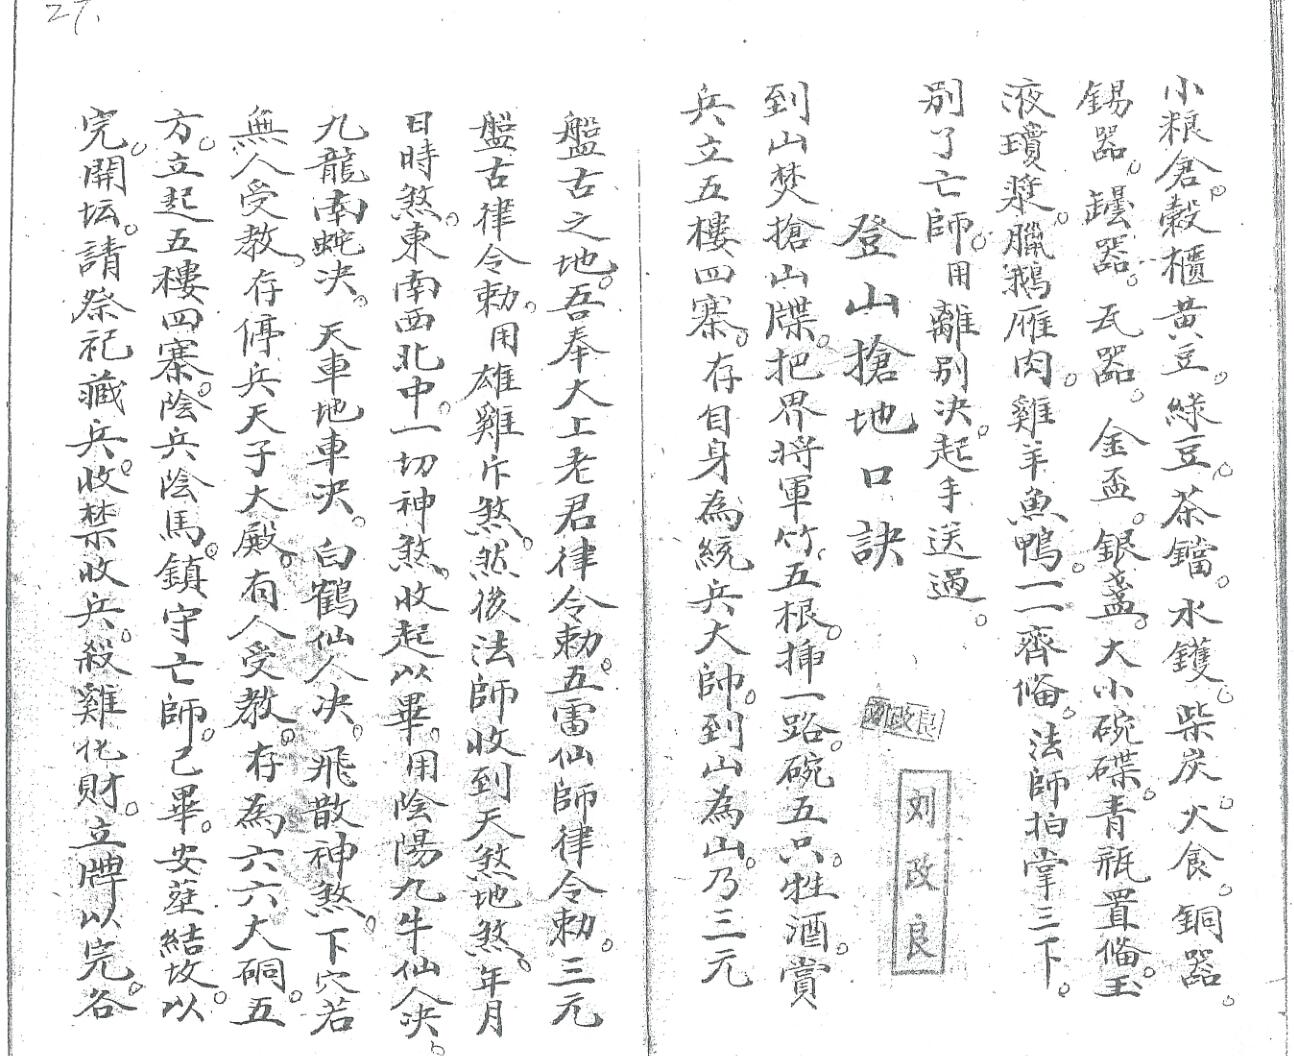 27.
小粮倉。穀櫃黃豆。綠豆。茶鐺。水鑊。柴炭。火食。銅器。
錫器。罎器。瓦器。金盃。銀盞。大小碗碟。青瓶置俻。玉
液瓊漿。臘鵝雁肉。雞羊魚鴨。一一齊俻。法師拍掌三下。
别了亡師。用離别决。起手送過。
登山搶地口訣
刘改良
刘改良
到山焚搶山牒。把界将軍竹五根。揷一路。碗五只。牲酒。賞
兵立五樓四寨。存自身為統兵大帥。到山為山。乃三元
盤古之地。吾奉大上老君律令勅。五雷仙師律令勅。三元
盤古律令勅。用雄雞斥煞。然後法師收到天煞地煞。年月
日時煞。東南西北中。一切神煞。收起以畢。用陰陽九牛仙人决。
九龍南蛇决。天車地車决。白鶴仙人决。飛散神煞。下穴若
無人受教。存停兵天子大殿。有人受教。存為六六大硐。五
方。立起五樓四寨。陰兵陰馬。鎮守亡師。己畢。安塟結坟。以
完。開坛。請祭祀藏兵。收禁收兵。殺雞化財。立牌以完。各